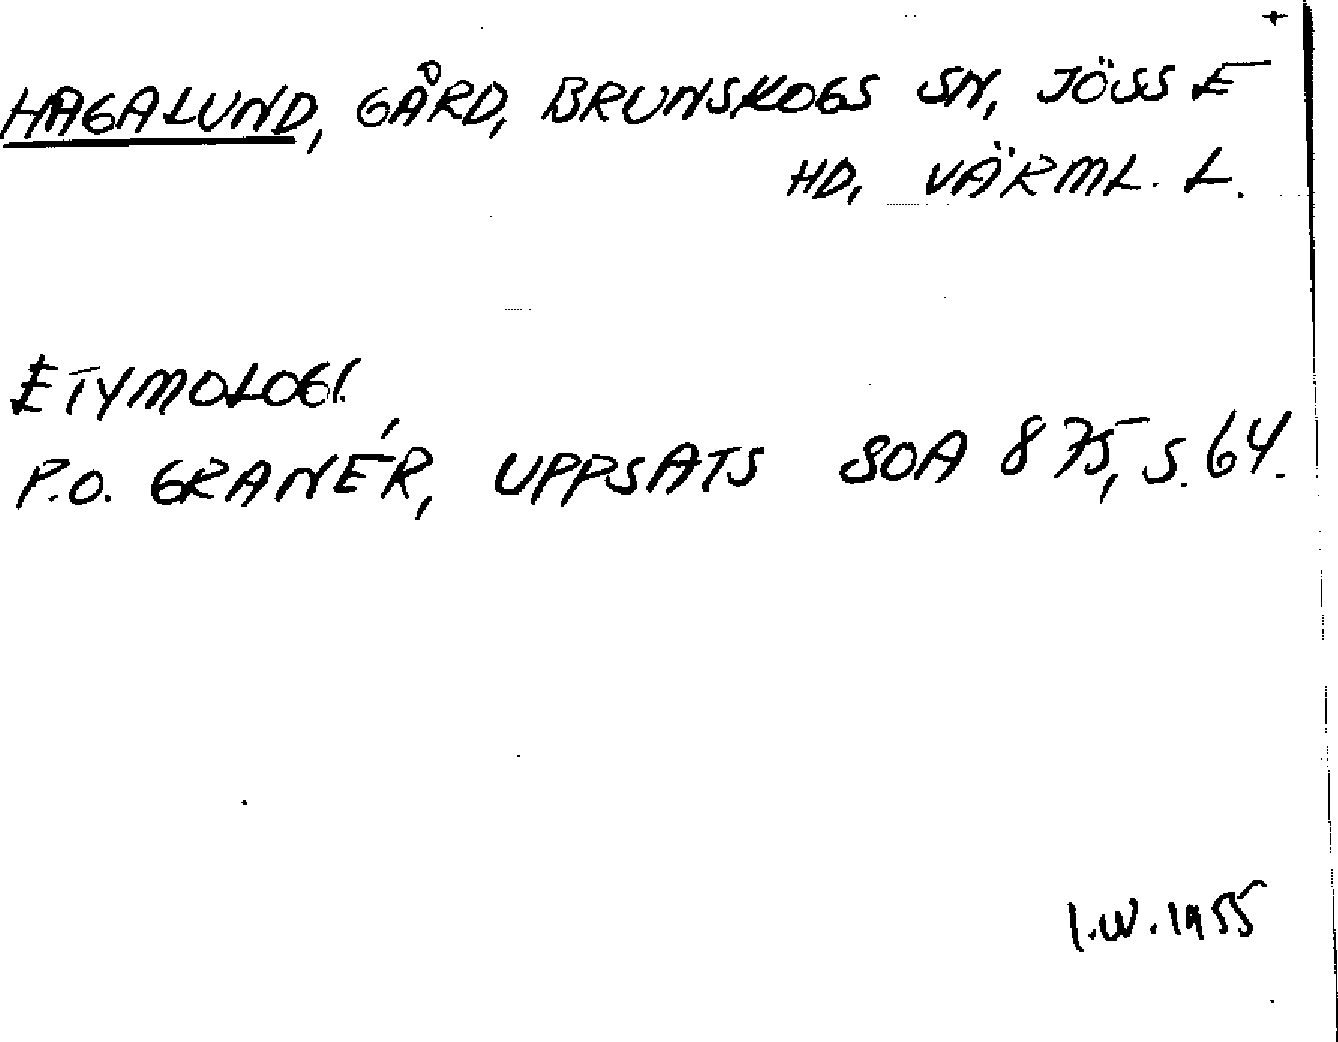 HAGALUND, GÅRD, BRUNSKOGS SN, JÖSSE
HD, VÄRML. L.
ETYMOLOGI.
P.O. GRANÉR, UPPSATS SOA 875, S. 64.
I.W. 1955